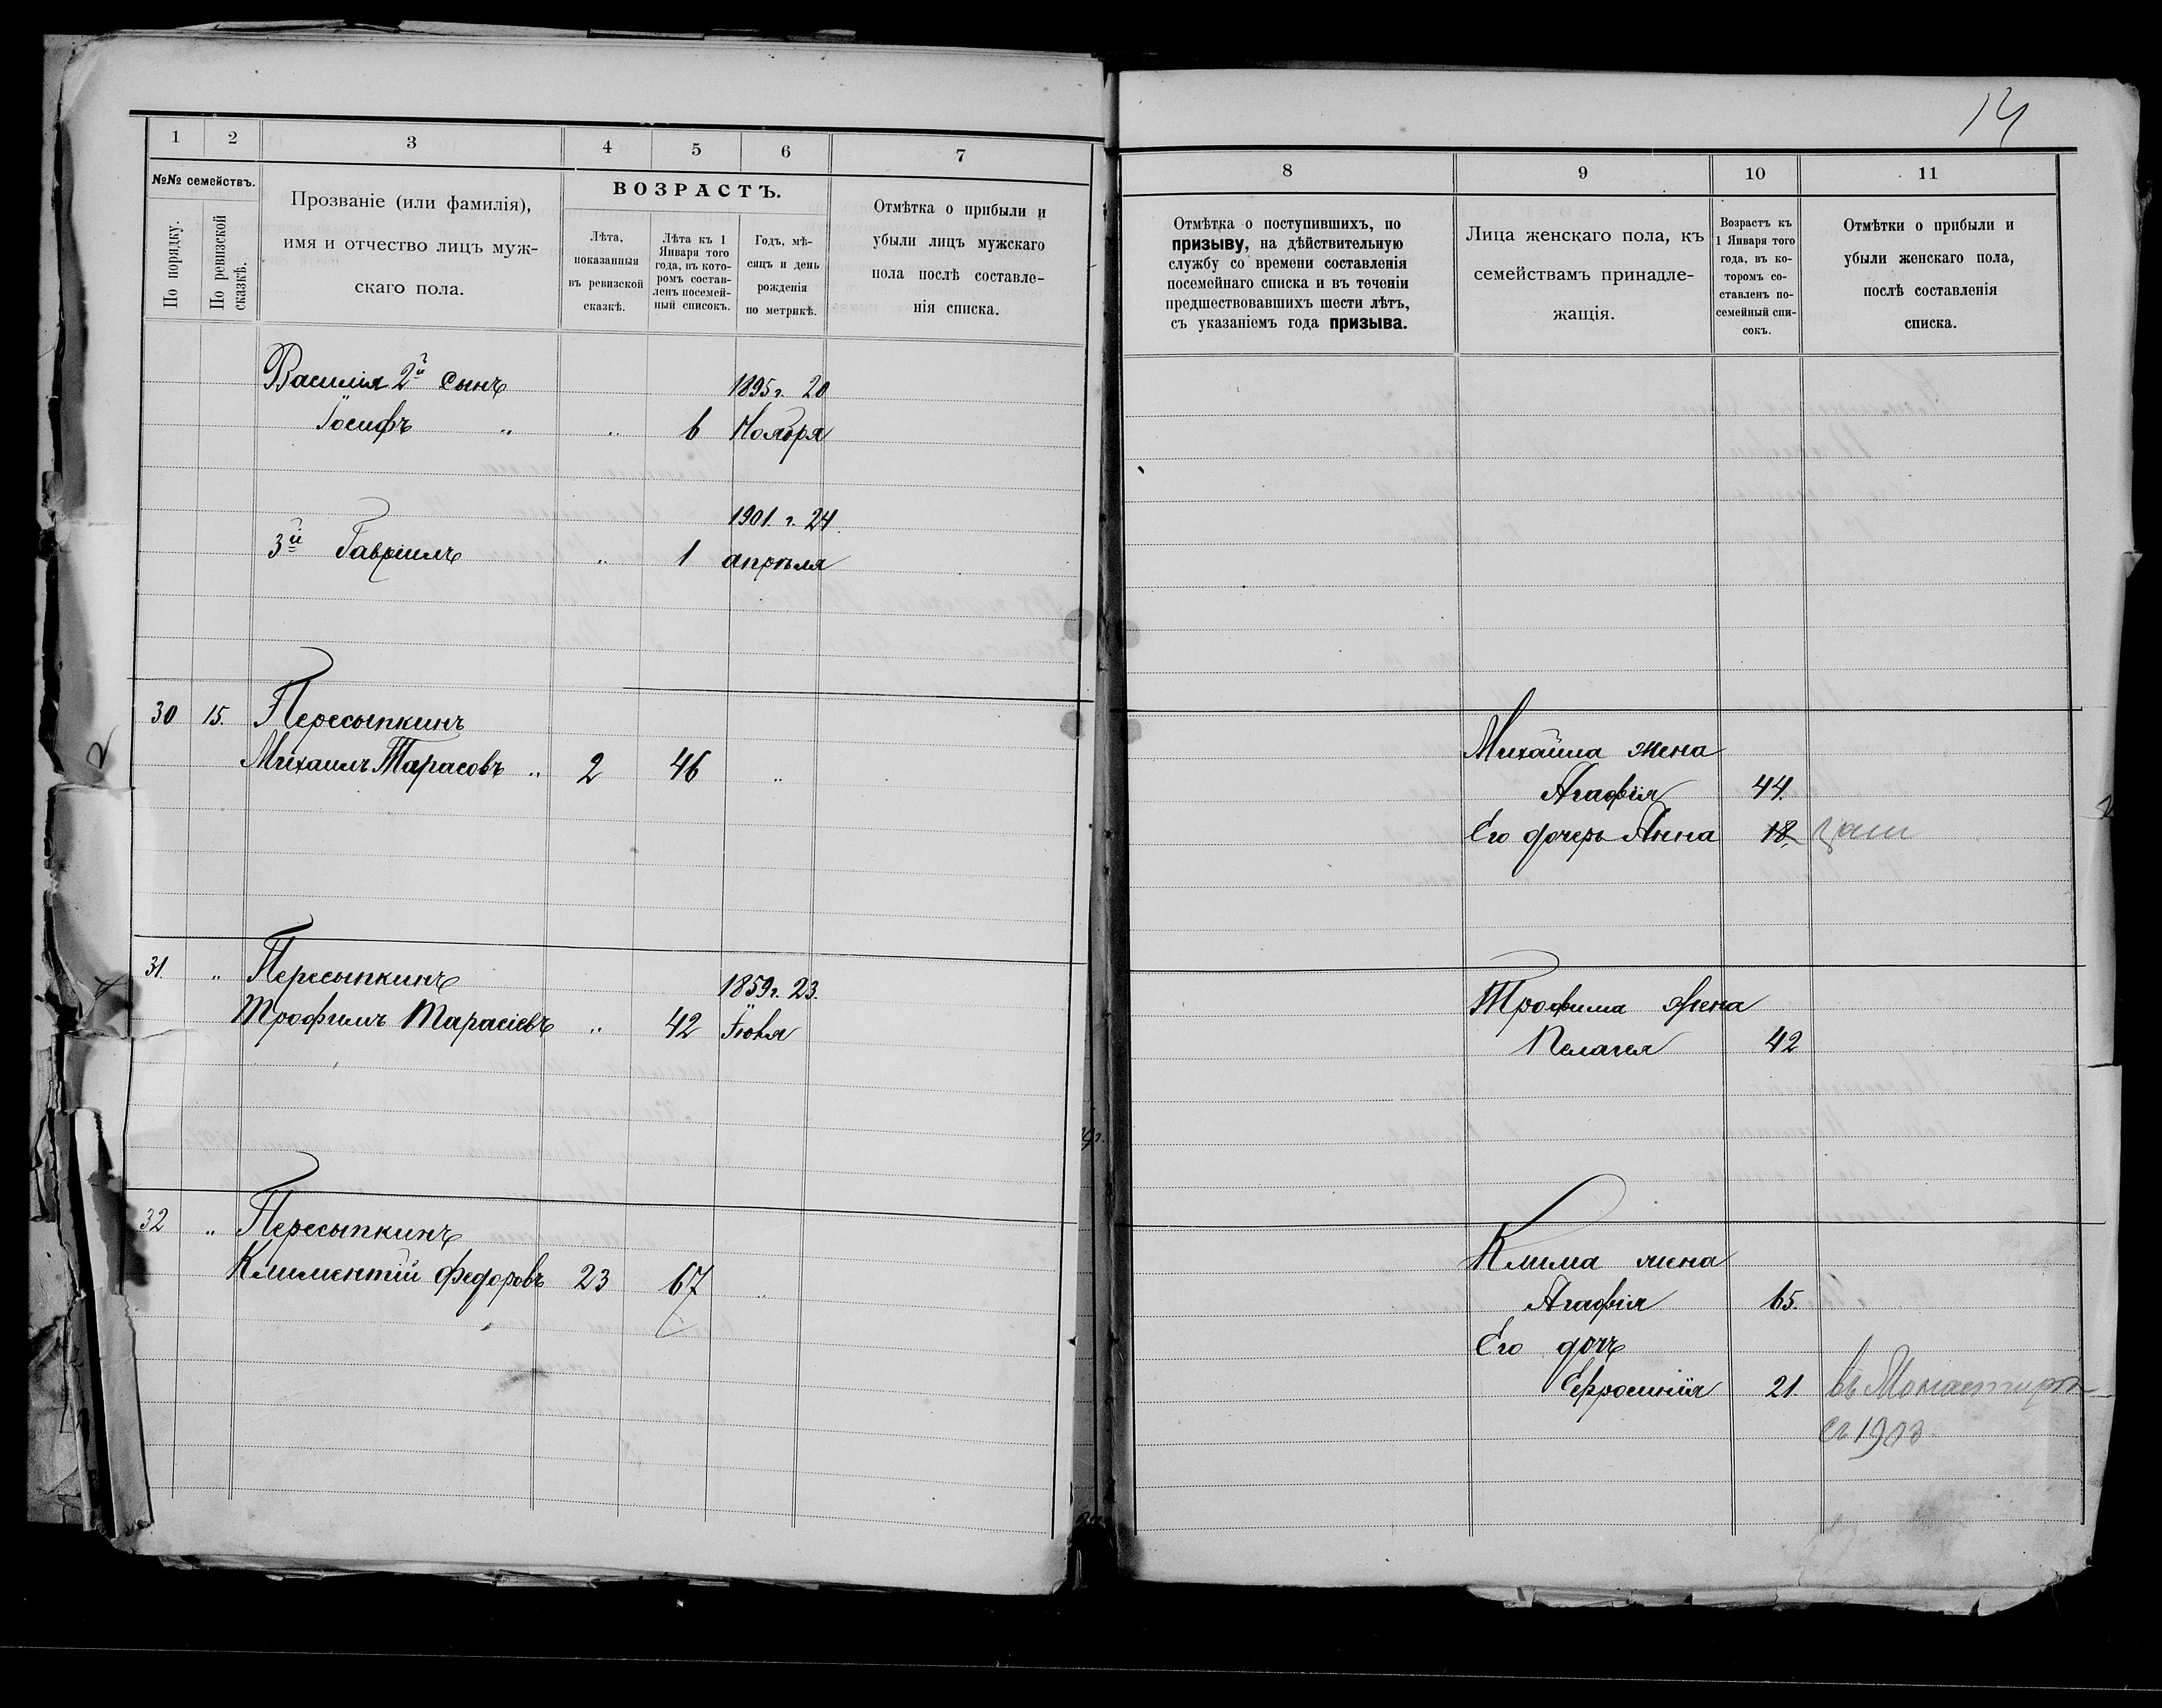 14
1 2 3 4 5 6 7
№№ семействъ.
По порядку.
По ревизской сказкѣ.
Прозваніе (или фамилія),
имя и отчество лицъ муж-
скаго пола.
ВОЗРАСТЪ.
Лѣта,
показанныя
въ ревизской
сказкѣ.
Лѣта къ 1
Января того
года, въ кото-
ромъ состав-
ленъ посемей-
ный списокъ.
Годъ, мѣ-
сяцъ и день
рожденія
по метрикѣ.
Отмѣтка о прибыли и
убыли лицъ мужскаго
пола послѣ составле-
нія списка.
8 9 10 11
Отмѣтка о поступившихъ, по
призыву, на дѣйствительную
службу со времени составленія
посемейнаго списка и въ теченіи
предшествовавшихъ шести лѣтъ,
съ указаніемъ года призыва.
Лица женскаго пола, къ
семействамъ принадле-
жащія.
Возрастъ къ
1 Января того
года, въ ко-
торомъ со-
ставленъ по-
семейный спи-
сокъ.
Отмѣтки о прибыли и
убыли женскаго пола,
послѣ составленія
списка.
Василія 2й сынъ 1895 г. 20
Іосифъ " " 6 Ноября
1901 г. 24
3й Гавріилъ " 1 апрѣля
30 15. Пересыпкинъ
Михаилъ Тарасовъ " 2 46 "
Михаила жена
Агафія 44.
Его дочерь Анна 18
31 " Пересыпкинъ 1859 г. 23.
Трофимъ Тарасіевъ " 42
Трофима жена
Пелагея 42
32 " Пересыпкинъ
Климентій Федоровъ 23 67 "
Клима жена
Агафія 65.
Его дочь
Ефросинія 21. въ Монастирѣ
съ 1903